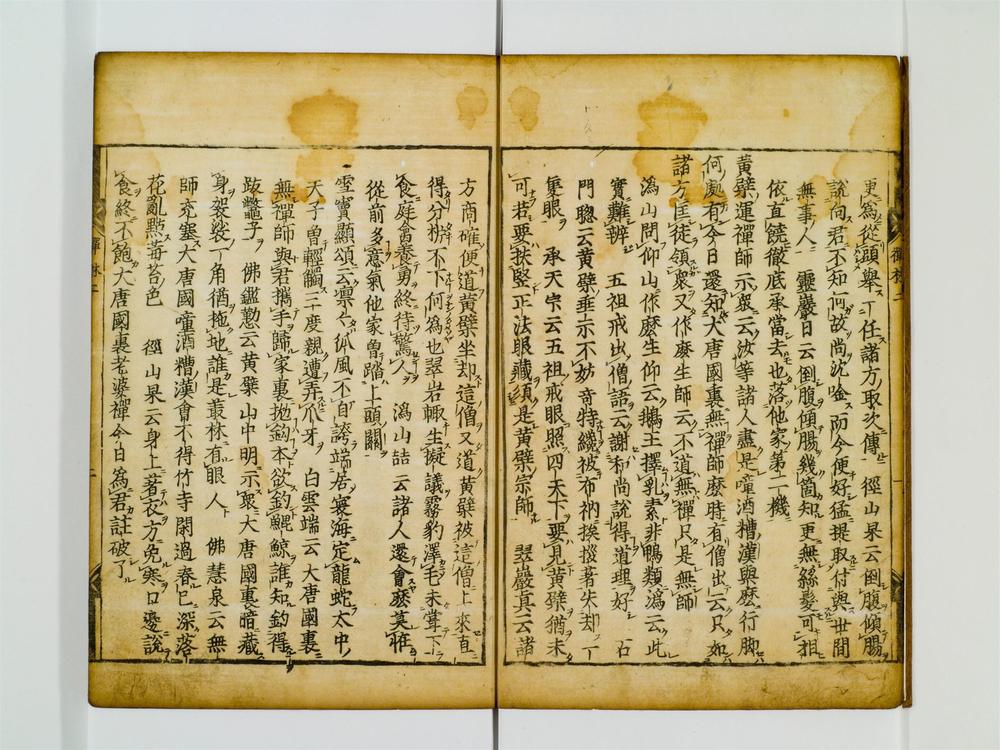 更爲從頭擧一任諸方取次傳　徑山杲云倒腹傾腸
説向君不知何故尚沈唫而今便好猛提取付與世間
無事人　靈巖日云倒腹傾腸幾箇知更無絲髮可相
依直饒徹底承當去也落他家第二機
黄檗運禪師示衆云汝等諸人盡是噇酒糟漢與麽行脚
何處有今日還知大唐國裏無禪師麽時有僧出云只如
諸方匡徒領衆又作麽生師云不道無禪只是無師
潙山問仰山作麽生仰云鵝王擇乳素非鴨類潙云此
實難辨　五祖戒出僧語云謝和尚説得道理好　石
門聰云黄檗垂示不妨奇特纔被布衲挨拶著失却一
隻眼　承天宗云五祖戒眼照四天下要見黄檗猶未
可若要扶竪正法眼藏須是黄檗宗師　翠巖真云諸
方商確便道黄檗坐却這僧又道黄檗被這僧上來直
得分拚不下何爲也翠岩輙生擬議霧豹澤毛未甞下
食庭禽養勇終待驚人　潙山喆云諸人還會麽莫怪
從前多意氣他家曾踏上頭關
雪竇顯頌云凛凛孤風不自誇端居寰海定龍蛇太中
天子曾輕觸三度親遭弄爪牙　白雲端云大唐國裏
無禪師與君攜手歸家裏抛鈎本欲釣鯤鯨誰知釣得
跛鼈子　佛鑑懃云黄檗山中明示衆大唐國裏暗藏
身袈裟一角猶拖地誰是叢林有眼人　佛慧泉云無
師充塞大唐國噇酒糟漢會不得竹寺閑過春已深落
花亂點莓苔色　徑山杲云身上著衣方免寒口邊説
食終不飽大唐國裏老婆禪今日爲君註破了
禪林二